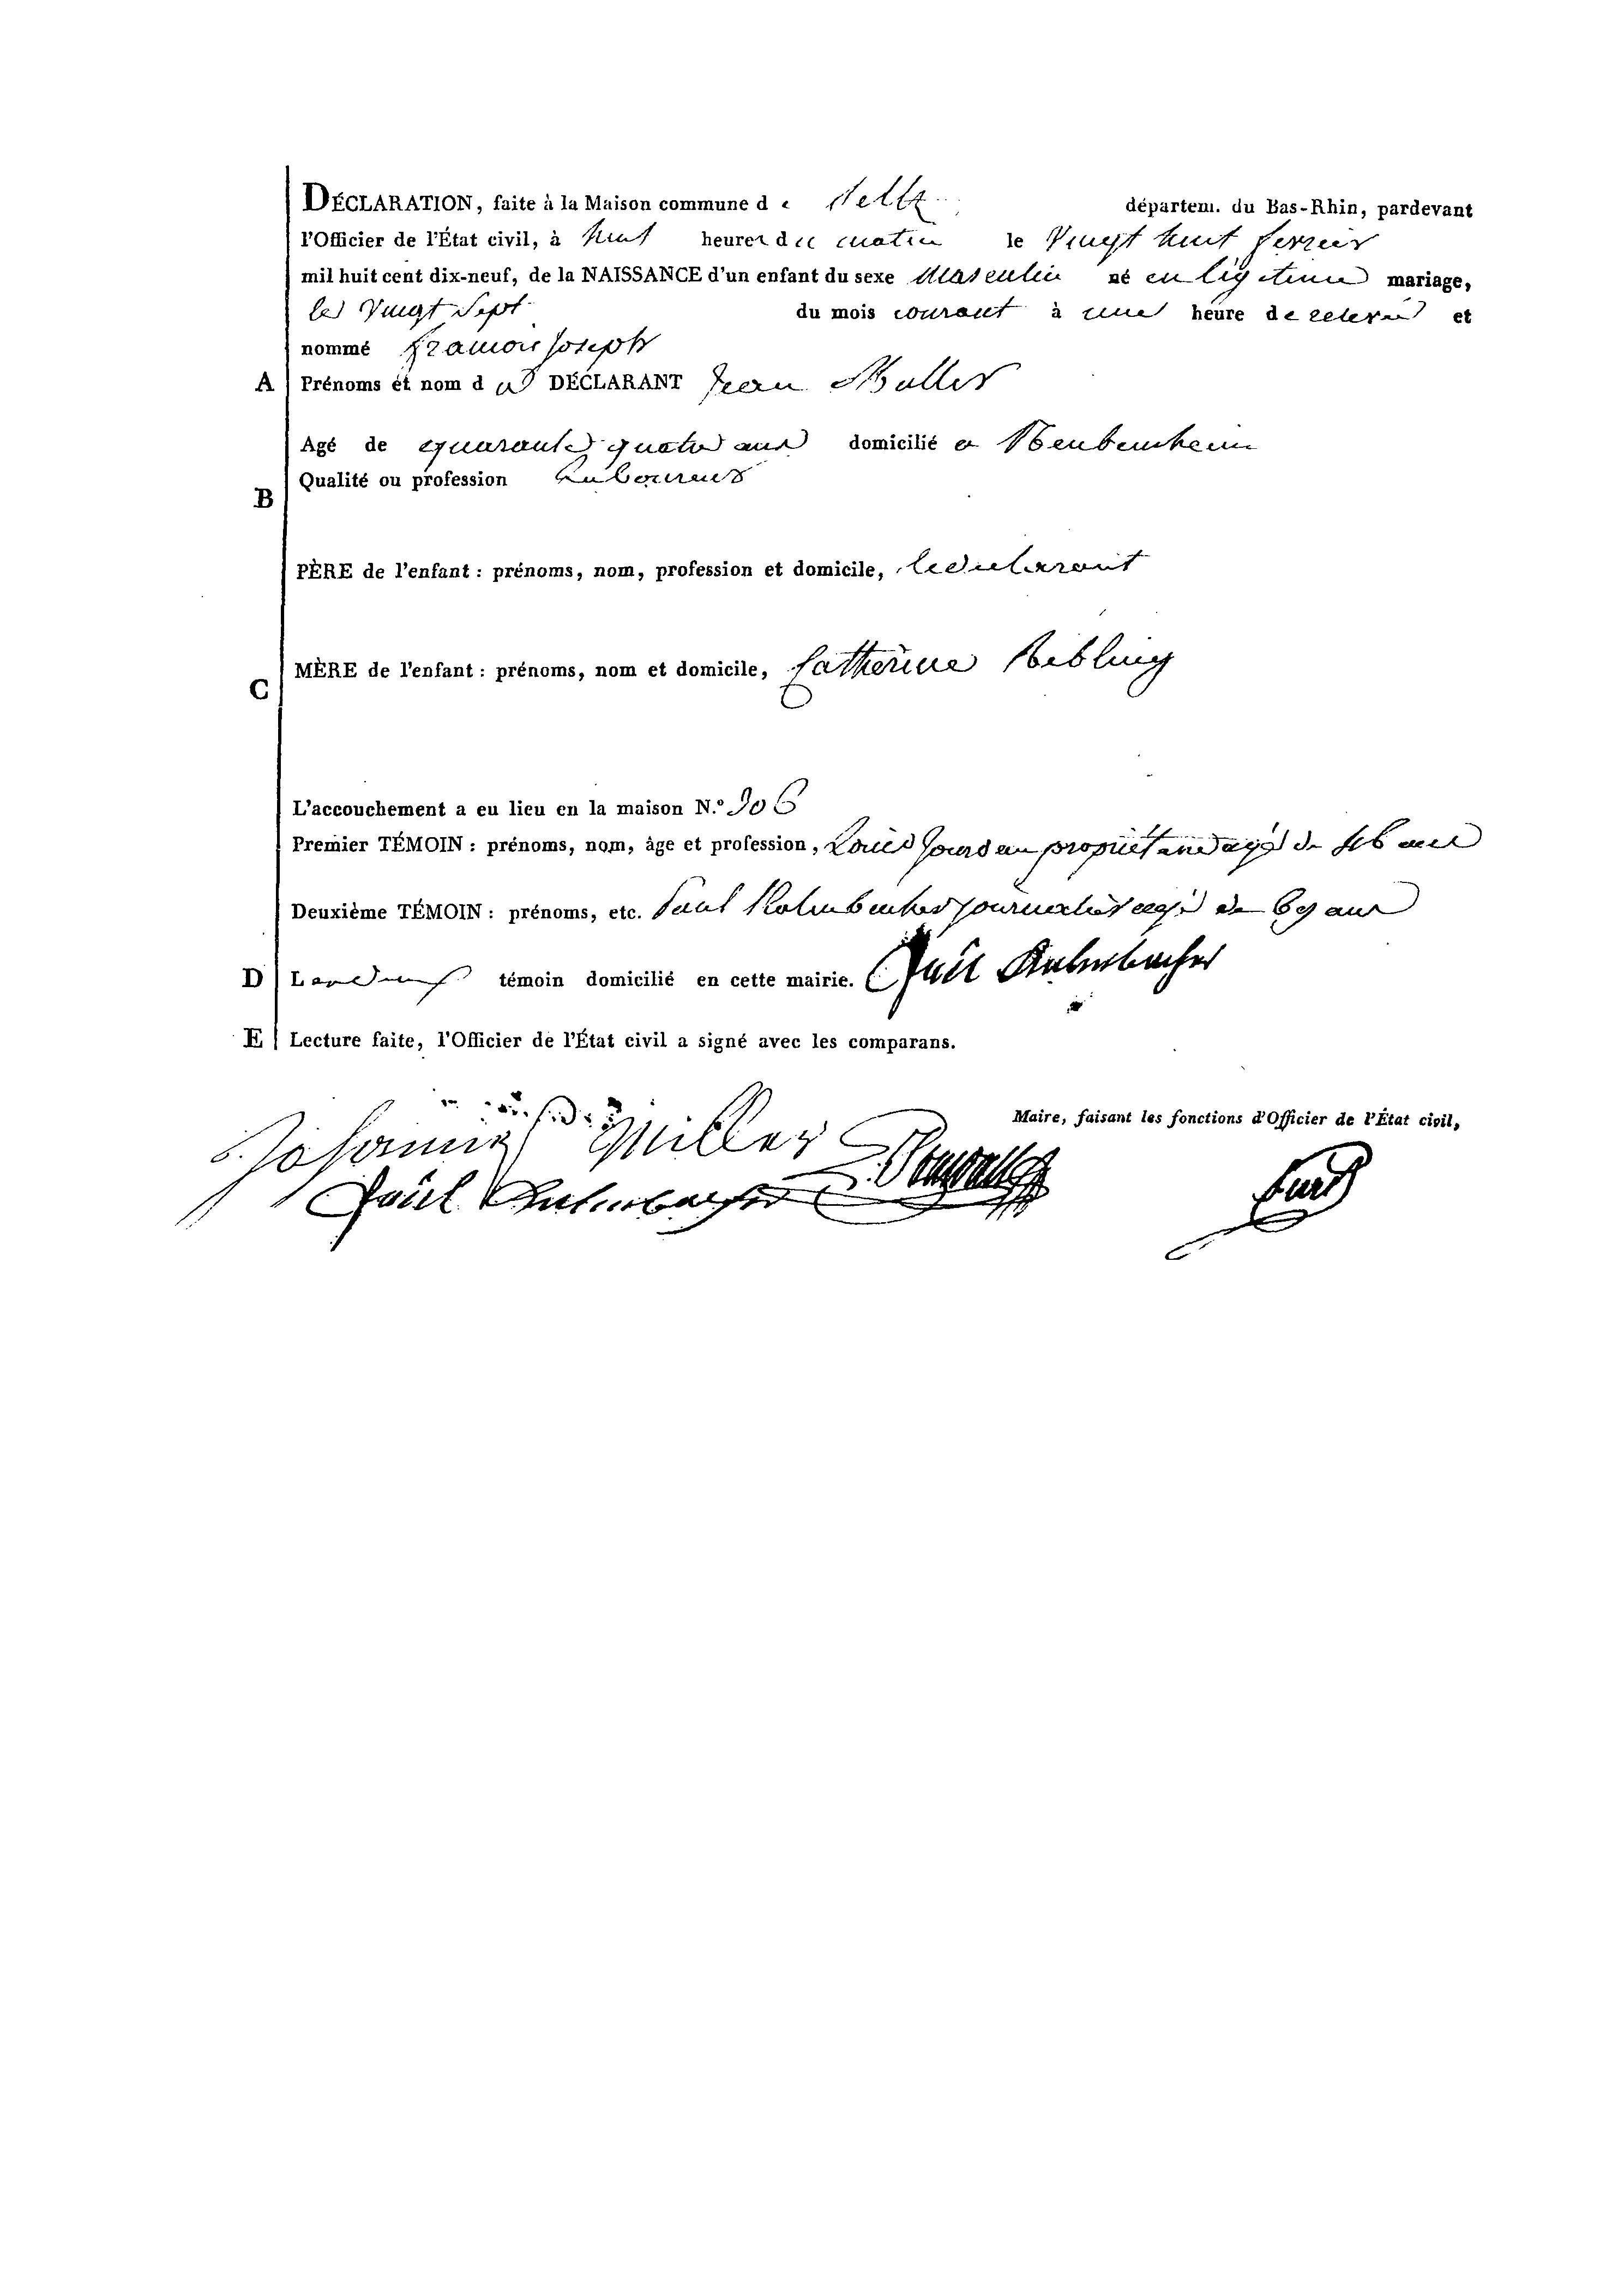 DÉCLARATION, faite à la Maison commune d e Seltz départem. du Bas-Rhin, pardevant
l'Officier de l'État civil, à huit heures du matin le Vingt huit fevrier
mil huit cent dix-neuf, de la NAISSANCE d'un enfant du sexe Masculin né en légitime mariage,
le Vingt Sept du mois courant à une heure de relevée et
nommé françois Joseph
A Prénoms et nom d u DÉCLARANT Jean Muller
Agé de quarante quatre ans domicilié a
B Qualité ou profession Laboureur
PÈRE de l'enfant : prénoms, nom, profession et domicile, le declarant
C MÈRE de l'enfant : prénoms, nom et domicile, Catherine
L'accouchement a eu lieu en la maison N.º 306
Premier TÉMOIN : prénoms, nom, âge et profession, Louis Jourdan propriétaire agé de 46 ans
Deuxième TÉMOIN : prénoms, etc. Paul journalier agé de 69 ans
D témoin domicilié en cette mairie.
E Lecture faite, l'Officier de l'État civil a signé avec les comparans.
Maire, faisant les fonctions d'Officier de l'État civil,
Johannes Müller